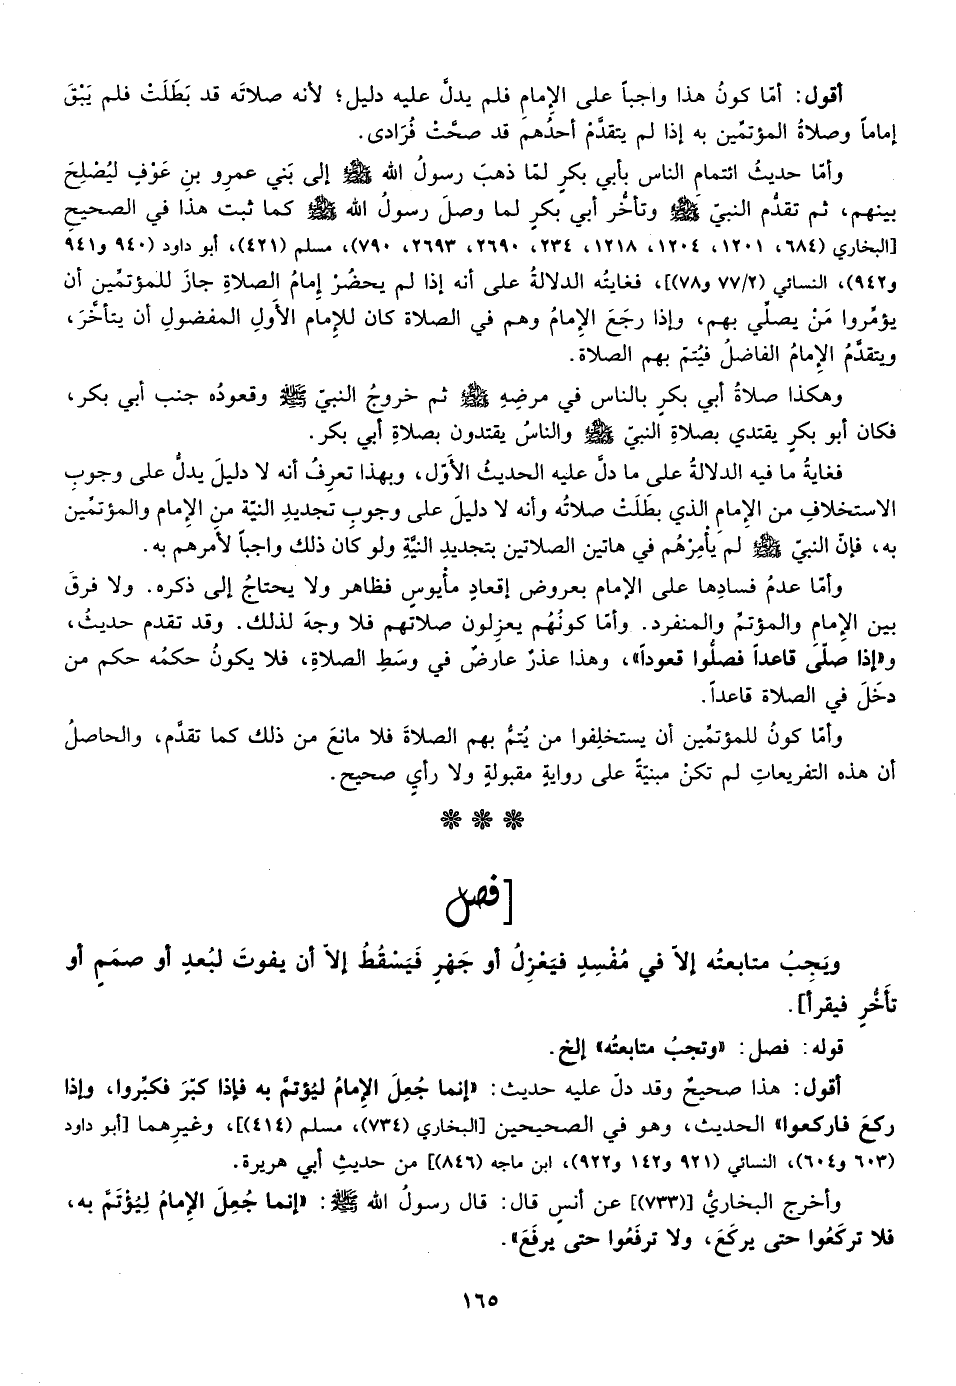 أقول: أمّا كونُ هذا واجباً على الإمام فلم يدلَّ عليه دليل؛ لأنه صلاتَه قد بَطَلَتْ فلم يَبْقَ
إماماً وصلاةُ المؤتمِّين به إذا لم يتقدَّمْ أحدُهم قد صحَّتْ فُرَادى.
وأمّا حديثُ ائتمامِ الناس بأبي بكرٍ لمّا ذهبَ رسولُ الله ﷺ إلى بَني عمرِو بنِ عَوْفٍ ليُصْلِحَ
بينهم، ثم تقدُّم النبيّ ﷺ وتأخُّر أبي بكرٍ لما وصلَ رسولُ الله ﷺ كما ثبت هذا في الصحيحِ
[البخاري (٦٨٤، ١٢٠١، ١٢٠٤، ١٢١٨، ٢٣٤، ٢٦٩٠، ٢٦٩٣، ٧٩٠)، مسلم (٤٢١)، أبو داود (٩٤٠ و٩٤١
و٩٤٢)، النسائي (٧٧/٢ و٧٨)]، فغايتُه الدلالةُ على أنه إذا لم يحضُرْ إمامُ الصلاةِ جازَ للمؤتمِّين أن
يؤمِّروا مَنْ يصلِّي بهم، وإذا رجَعَ الإمامُ وهم في الصلاة كان للإمام الأولِ المفضولِ أن يتأخَّرَ،
ويتقدَّمُ الإمامُ الفاضلُ فيُتمّ بهم الصلاة.
وهكذا صلاةُ أبي بكرٍ بالناس في مرضِهِ ﷺ ثم خروجُ النبيّ ﷺ وقعودُه جنب أبي بكر،
فكان أبو بكرٍ يقتدي بصلاةِ النبيّ ﷺ والناسُ يقتدون بصلاةِ أبي بكر.
فغايةُ ما فيه الدلالةُ على ما دلَّ عليه الحديثُ الأوّل، وبهذا تعرِفُ أنه لا دليلَ يدلُّ على وجوبِ
الاستخلافِ من الإمامِ الذي بطَلَتْ صلاتُه وأنه لا دليلَ على وجوبِ تجديدِ النيّة منِ الإمام والمؤتمِّين
به، فإنّ النبيّ ﷺ لم يأمرْهُم في هاتين الصلاتين بتجديدِ النيَّةِ ولو كان ذلك واجباً لأمرهم به.
وأمّا عدمُ فسادِها على الإمام بعروض إقعادٍ مأْيوسٍ فظاهر ولا يحتاجُ إلى ذكره. ولا فرقَ
بين الإمامِ والمؤتمِّ والمنفرد. وأمّا كونُهُم يعزِلون صلاتهم فلا وجهَ لذلك. وقد تقدم حديثُ،
و«إذا صلّىَ قاعداً فصلُّوا قعوداً»، وهذا عذرٌ عارضٌ في وسَطِ الصلاةِ، فلا يكونُ حكمُه حكم من
دخَلَ في الصلاة قاعداً.
وأمّا كونُ للمؤتمِّين أن يستخلِفوا من يُتمُّ بهم الصلاةَ فلا مانعَ من ذلك كما تقدَّم، والحاصلُ
أن هذه التفريعاتِ لم تكنْ مبنيّةً على روايةٍ مقبولةٍ ولا رأيٍ صحيح.
[فصل
ويَجِبُ متابعتُه إلاّ في مُفْسِدٍ فيَعْزِلُ أو جَهْرٍ فَيَسْقُطُ إلاّ أن يفوتَ لبُعدٍ أو صمَمٍ أو
تأَخُّرٍ فيقرأ].
قوله: فصل: «وتجبُ متابعتُه» إلخ.
أقول: هذا صحيحٌ وقد دلّ عليه حديث: «إنما جُعلَ الإمامُ ليُؤتمَّ به فإذا كبّرَ فكبِّروا، وإذا
ركعَ فاركعوا» الحديث، وهو في الصحيحين [البخاري (٧٣٤)، مسلم (٤١٤)]، وغيرِهما [أبو داود
(٦٠٣ و٦٠٤)، النسائي (٩٢١ و١٤٢ و٩٢٢)، ابن ماجه (٨٤٦)] من حديثِ أبي هريرة.
وأخرج البخاريُّ [(٧٣٣)] عن أنسٍ قال: قال رسولُ الله ﷺ: «إنما جُعلَ الإمامُ لِيُؤْتَمَّ به،
فلا تركَعُوا حتى يركَعَ، ولا ترفَعُوا حتى يرفَعَ».
١٦٥